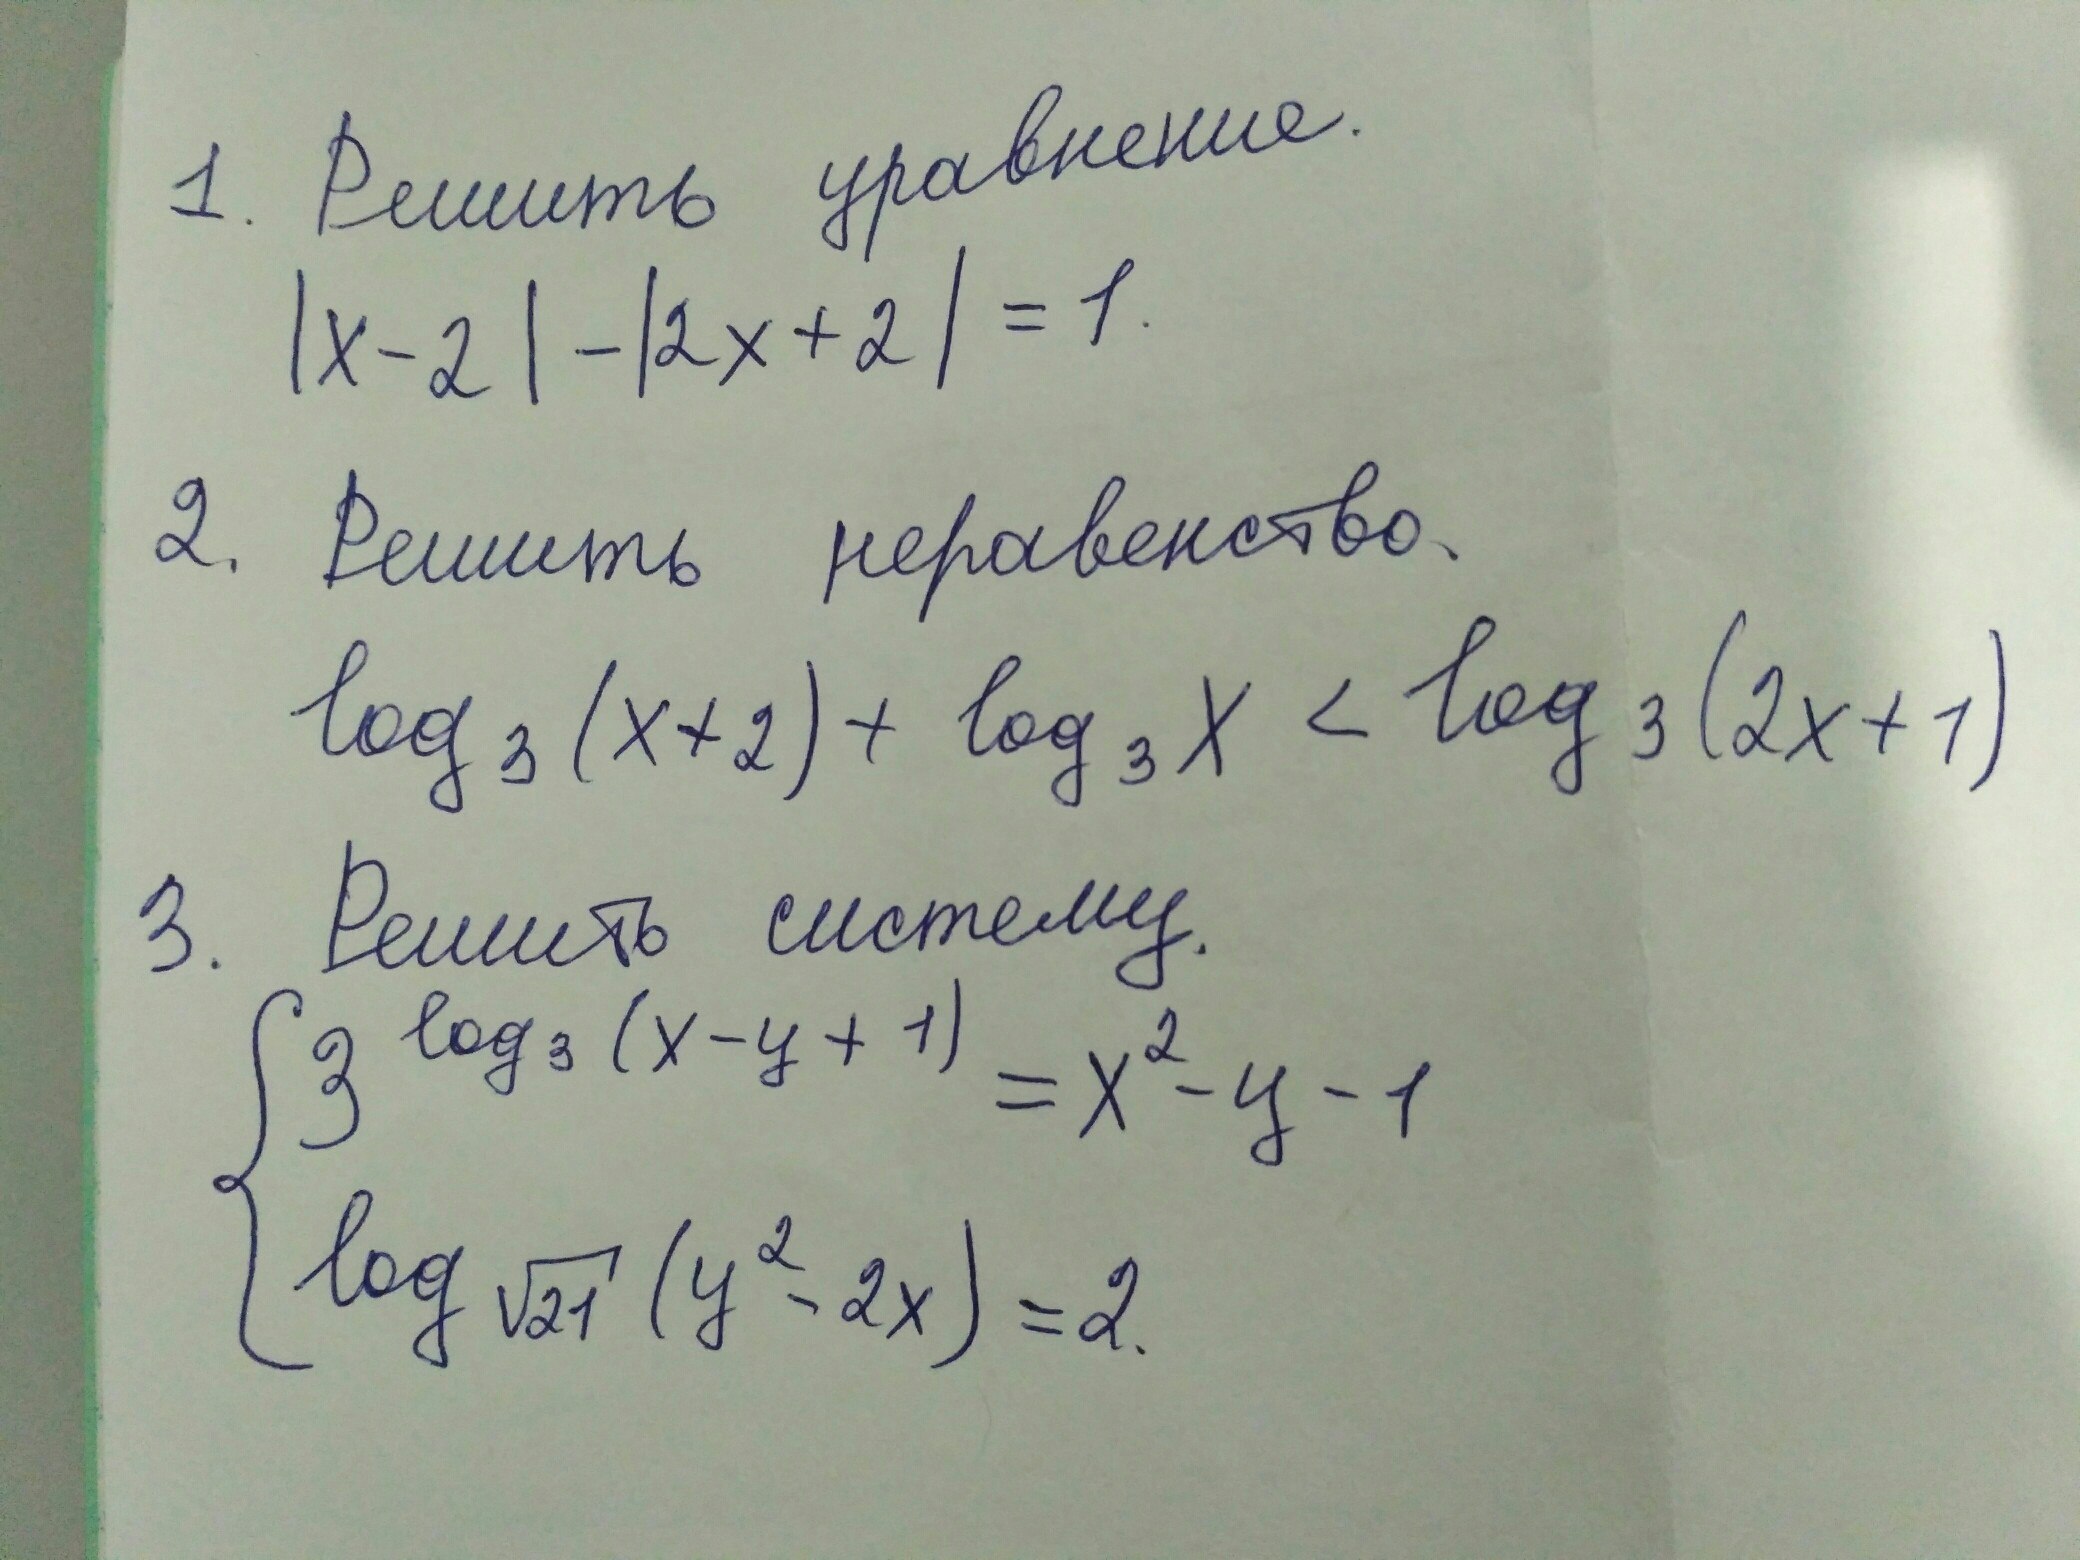 1. Решить уравнение.
|x-2|-|2x+2|=1.
2. Решить неравенство.
log₃(x+2)+log₃x<log₃(2x+1)
3. Решить систему.
{3^(log₃(x-y+1))=x²-y-1
log_√21(y²-2x)=2.